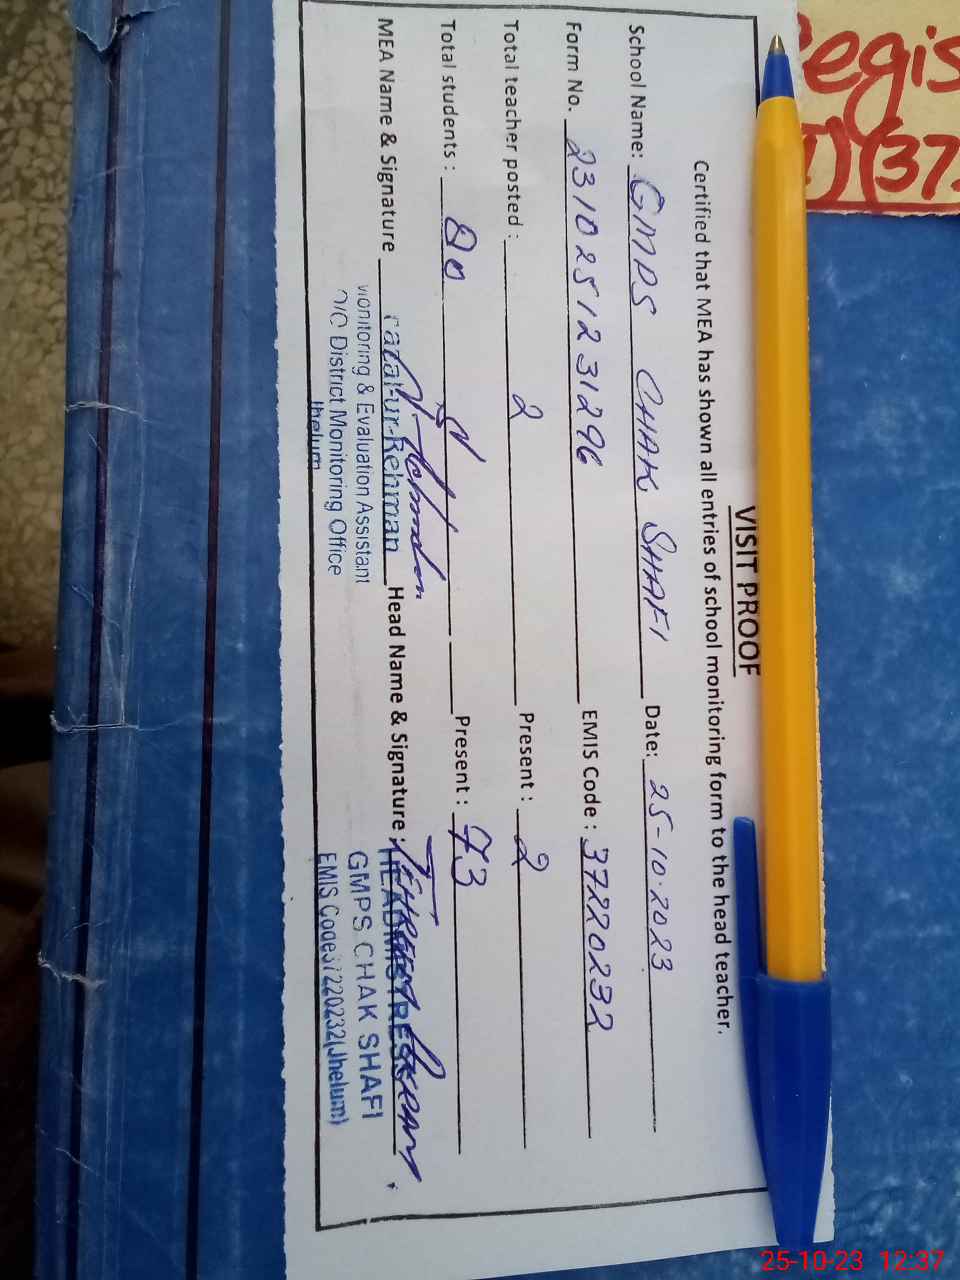 VISIT PROOF
Certified that MEA has shown all entries of school monitoring form to the head teacher.
School Name: GMPS CHAK SHAFI Date: 25-10-2023
Form No. 231025123 1296 EMIS Code: 37220232
Total teacher posted: 2 Present: 2
Total students: 80 Present: 73
MEA Name & Signature -ur-Rehman Head Name & Signature: HEADMISTRESS
Monitoring & Evaluation Assistant GMPS CHAK SHAFI
O/C District Monitoring Office EMIS Code37220232(Jhelum)
Jhelum
Regis
(37
25-10-23 12:37